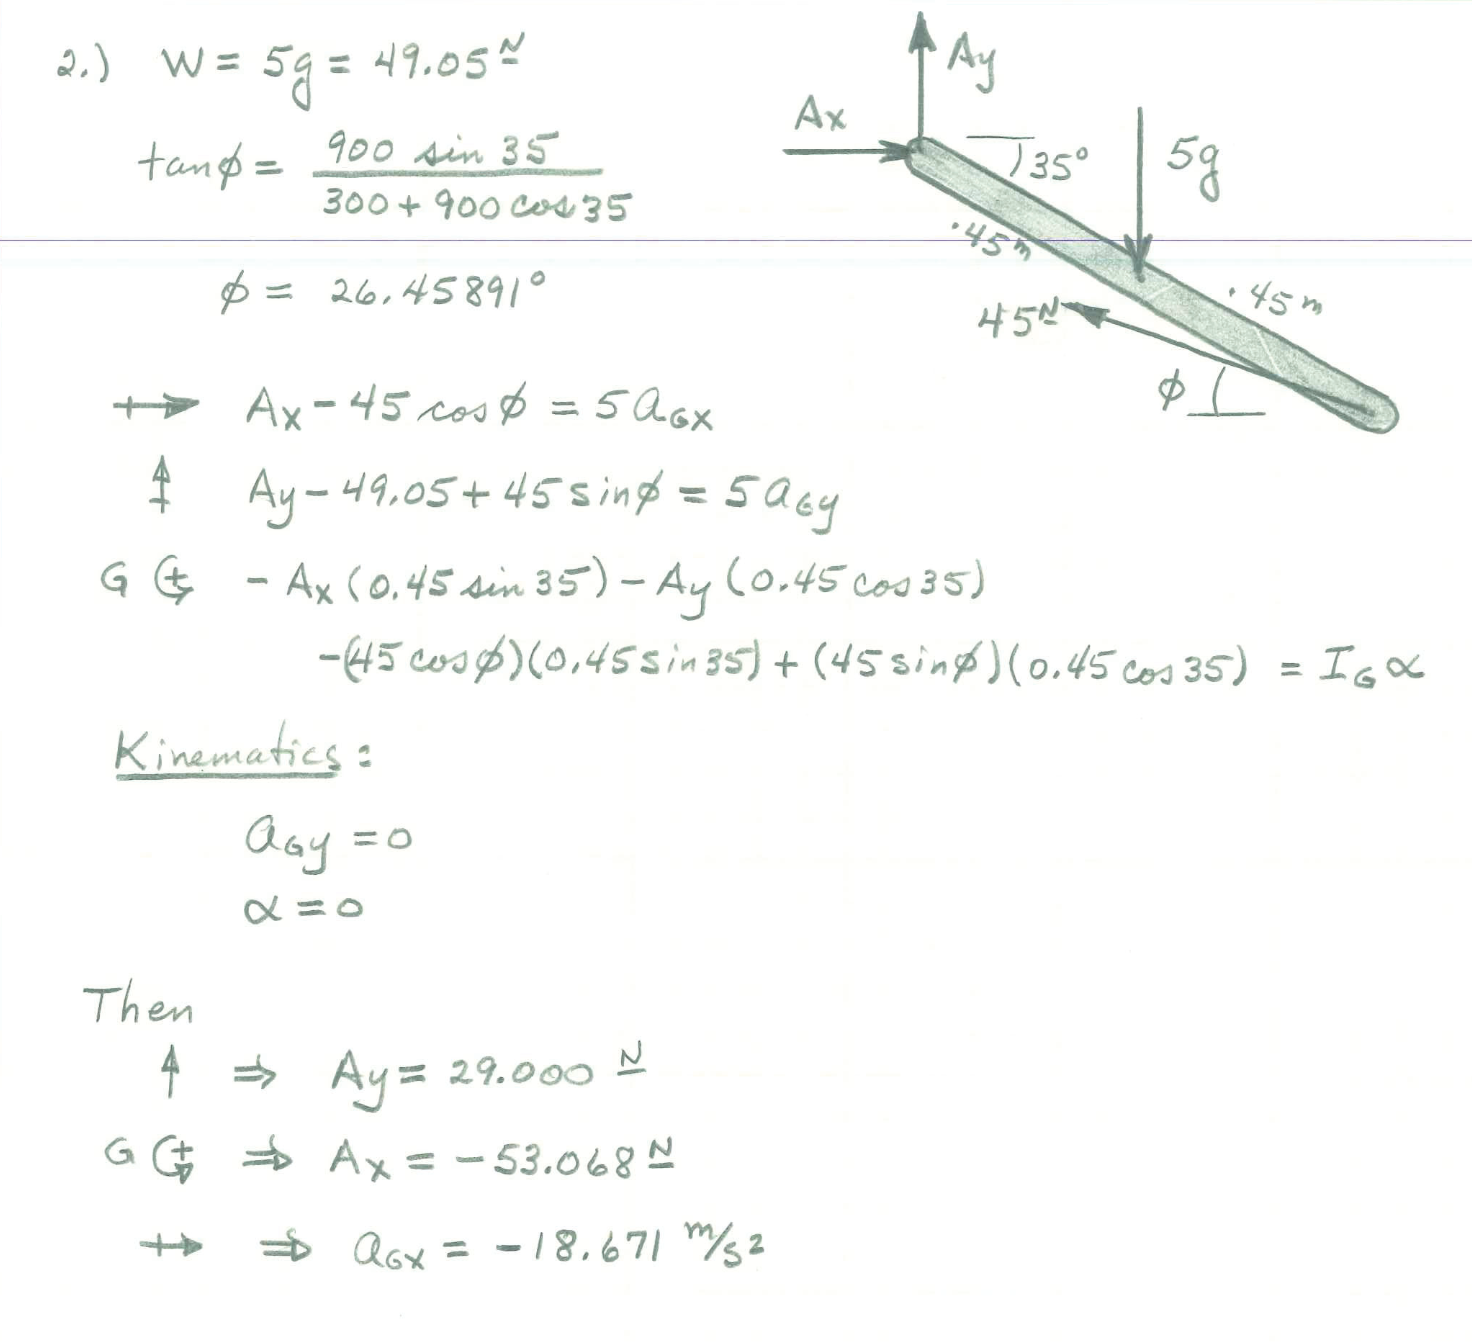 2.) W = 5g = 49.05 N
tanϕ = 900 sin 35 / 300 + 900 cos 35
ϕ = 26.45891°
Ay
Ax
35°
5g
.45m
.45m
45N
ϕ
Ax - 45 cosϕ = 5aGx
Ay - 49.05 + 45 sinϕ = 5aGy
G + - Ax (0.45 sin 35) - Ay (0.45 cos 35)
-(45 cosϕ)(0.45 sin 35) + (45 sinϕ)(0.45 cos 35) = IG α
Kinematics:
aGy = 0
α = 0
Then
↑ ⇒ Ay = 29.000 N
G + ⇒ Ax = -53.068 N
+→ ⇒ aGx = -18.671 m/s²